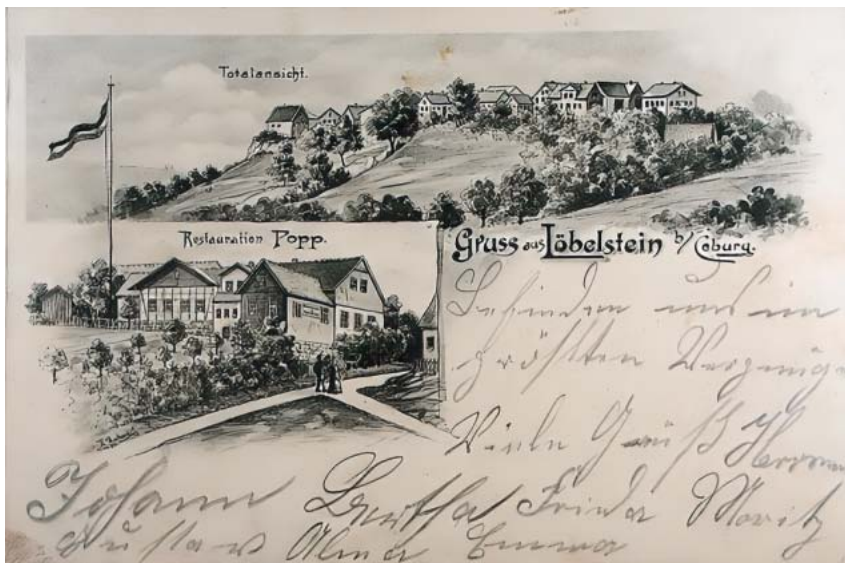 Totalansicht.
Restauration Popp.
Gruss aus Löbelstein b/ Coburg.
Befinden uns im
größten Vergnüg
Viele Grüß Herrmann
Johann Bertha Frieda Moritz
Gustav Alma Emma